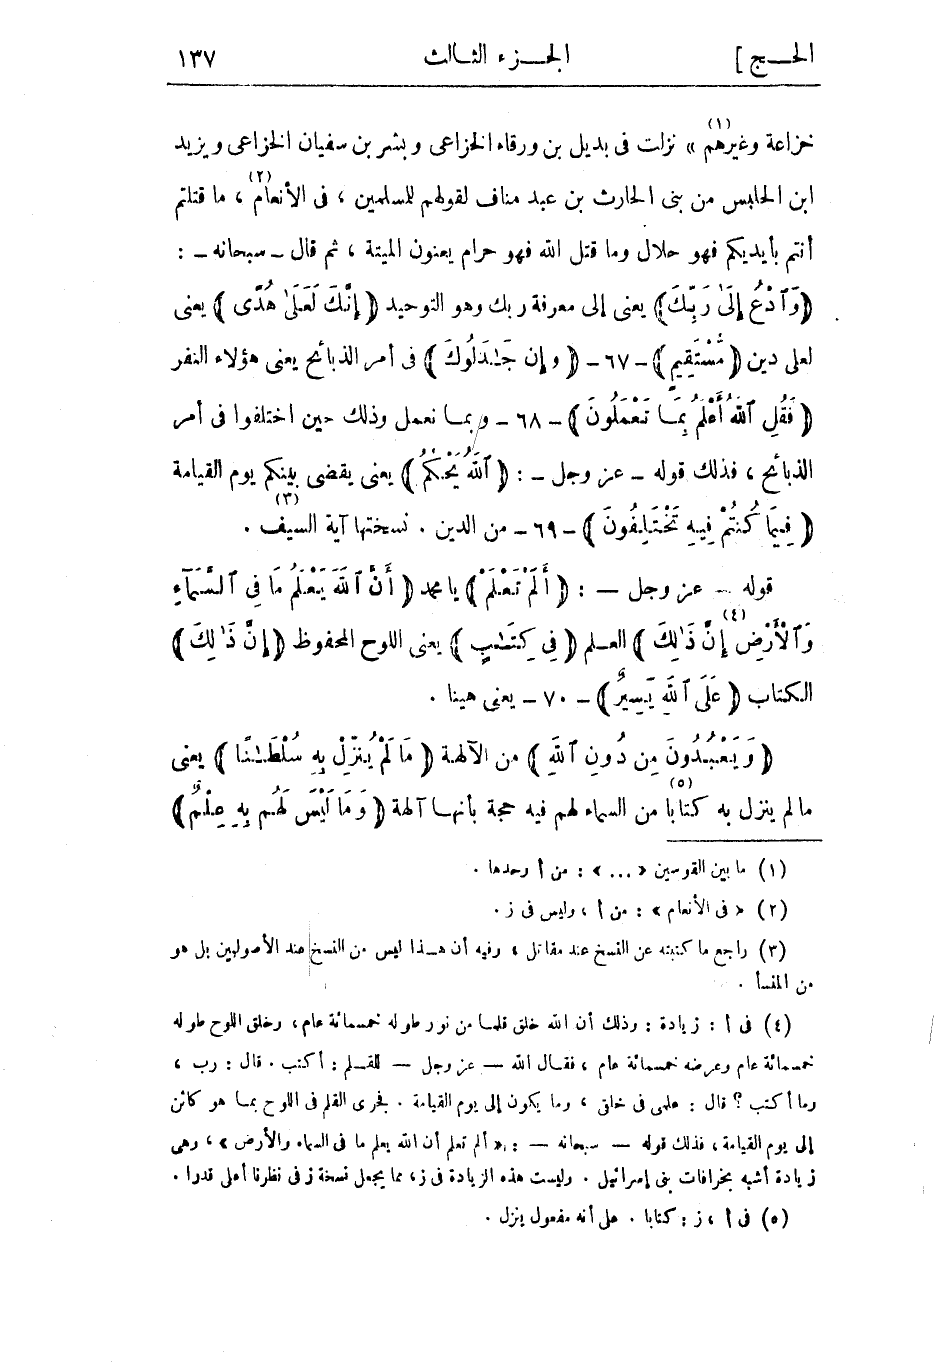 الحـج ] الجـزء الثـالث ١٣٧
خزاعة وغيرهم » (١) نزلت فى بديل بن ورقاء الخزاعى و بشر بن سفيان الخزاعى و يزيد
ابن الحليس من بنى الحارث بن عبد مناف لقولهم للسلمين ، فى الأنعام (٢) ، ما قتلتم
أنتم بأيديكم فهو حلال وما قتل الله فهو حرام يعنون الميتة ، ثم قال ـ سبحانه ـ :
﴿ وَٱدْعُ إِلَىٰ رَبِّكَ ﴾ يعنى إلى معرفة ربك وهو التوحيد ﴿ إِنَّكَ لَعَلَىٰ هُدًى ﴾ يعنى
لعلى دين ﴿ مُّسْتَقِيمٍ ﴾ ـ ٦٧ ـ ﴿ وإِن جَـٰدَلُوكَ ﴾ فى أمر الذبائح يعنى هؤلاء النفر
﴿ فَقُلِ ٱللهُ أَعْلَمُ بِمَا تَعْمَلُونَ ﴾ ـ ٦٨ ـ و بمـا نعمل وذلك حين اختلفوا فى أمر
الذبائح ، فذلك قوله ـ عز وجل ـ : ﴿ ٱللهُ يَحْكُمُ ﴾ يعنى يقضى بينكم يوم القيامة
﴿ فِيمَا كُنتُمْ فِيهِ تَخْتَلِفُونَ ﴾ ـ ٦٩ ـ من الدين (٣) . نسختها آية السيف .
قوله ـ عز وجل ـ : ﴿ أَلَمْ تَعْلَمْ ﴾ يا محمد ﴿ أَنَّ ٱللهَ يَعْلَمُ مَا فِى ٱلسَّمَآءِ
وَٱلْأَرْضِ (٤) إِنَّ ذَٰلِكَ ﴾ العـلم ﴿ فِى كِتَـٰبٍ ﴾ يعنى اللوح المحفوظ ﴿ إِنَّ ذَٰلِكَ ﴾
الكتاب ﴿ عَلَى ٱللهِ يَسِيرٌ ﴾ ـ ٧٠ ـ يعنى هينا .
﴿ وَيَعْبُدُونَ مِن دُونِ ٱللهِ ﴾ من الآلهة ﴿ مَا لَمْ يُنَزِّلْ بِهِ سُلْطَـٰنًا ﴾ يعنى
ما لم ينزل به كتابا (٥) من السماء لهم فيه حجة بأنهـا آلهة ﴿ وَمَا لَيْسَ لَهُم بِهِ عِلْمٌ ﴾
(١) ما بين القوسين « ... » : من أ وحدها .
(٢) « فى الأنعام » : من أ ، وليس فى ز .
(٣) راجع ما كتبته عن النسخ عند مقاتل ، وفيه أن هـذا ليس من النسخ عند الأصوليين بل هو
من المنسأ .
(٤) فى أ : زيادة : وذلك أن الله خلق قلمـا من نور طوله خمسمائة عام ، وخلق اللوح طوله
خمسمائة عام وعرضه خمسمائة عام ، فقـال الله — عز وجل — للقـلم : أكتب . قال : رب ،
وما أكتب ؟ قال : علمى فى خلق ، وما يكون إلى يوم القيامة . فجرى القلم فى اللوح بمـا هو كائن
إلى يوم القيامة ، فذلك قوله — سبحانه — : « ألم تعلم أن الله يعلم ما فى السماء والأرض » ، وهى
زيادة أشبه بخرافات بنى إسرائيل . وليست هذه الزيادة فى ز ، مما يجعل نسخة ز فى نظرنا أعلى قدرا .
(٥) فى أ ، ز : كتابا . على أنه مفعول ينزل .